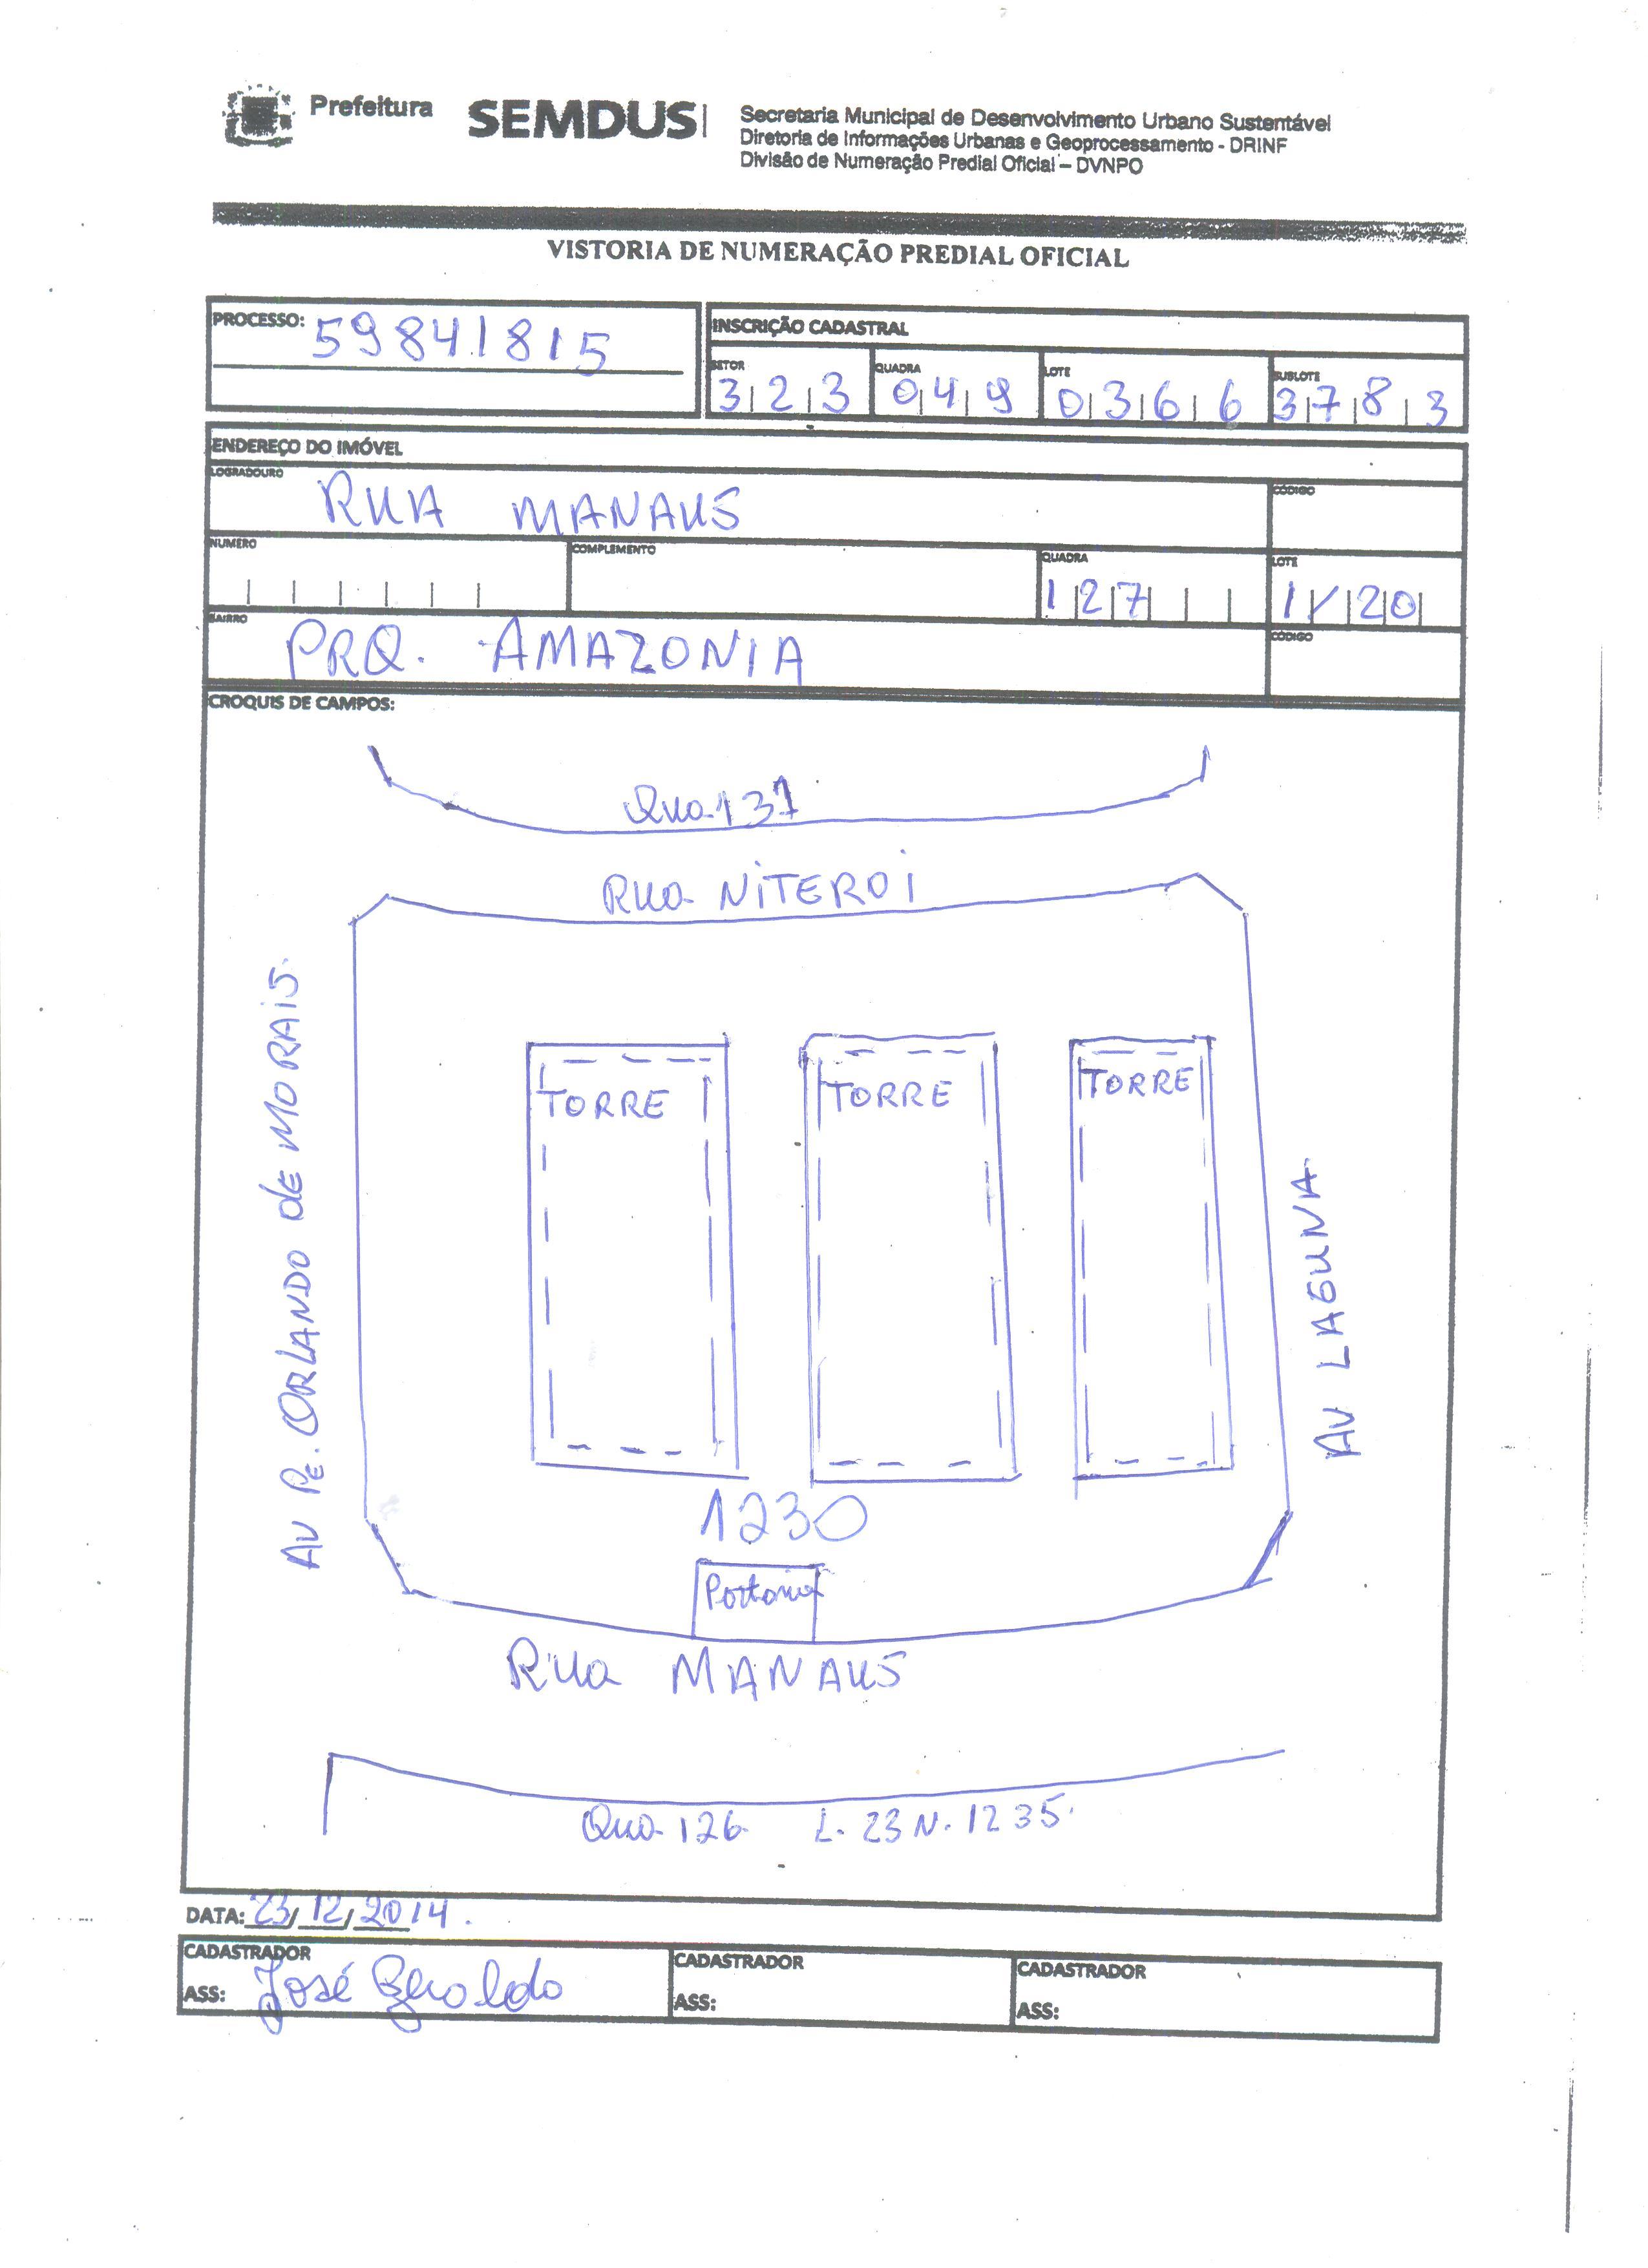 Prefeitura SEMDUS
Secretaria Municipal de Desenvolvimento Urbano Sustentável
Diretoria de Informações Urbanas e Geoprocessamento - DRINF
Divisão de Numeração Predial Oficial – DVNPO
VISTORIA DE NUMERAÇÃO PREDIAL OFICIAL
PROCESSO: 59841815
INSCRIÇÃO CADASTRAL
SETOR QUADRA LOTE SUBLOTE
323 049 0366 3783
ENDEREÇO DO IMÓVEL
LOGRADOURO CÓDIGO
RUA MANAUS
NUMERO COMPLEMENTO QUADRA LOTE
127 1/20
BAIRRO CÓDIGO
PRQ. AMAZONIA
CROQUIS DE CAMPOS:
Qua 131
Rua NiTEROi
AV PE. ORLANDO de MORAIS
TORRE TORRE TORRE
AV LAGUNA
1230
Portaria
Rua MANAUS
Qua 126 L. 23 N. 1235
DATA: 23/12/2014.
CADASTRADOR CADASTRADOR CADASTRADOR
ASS: José Geraldo ASS: ASS: